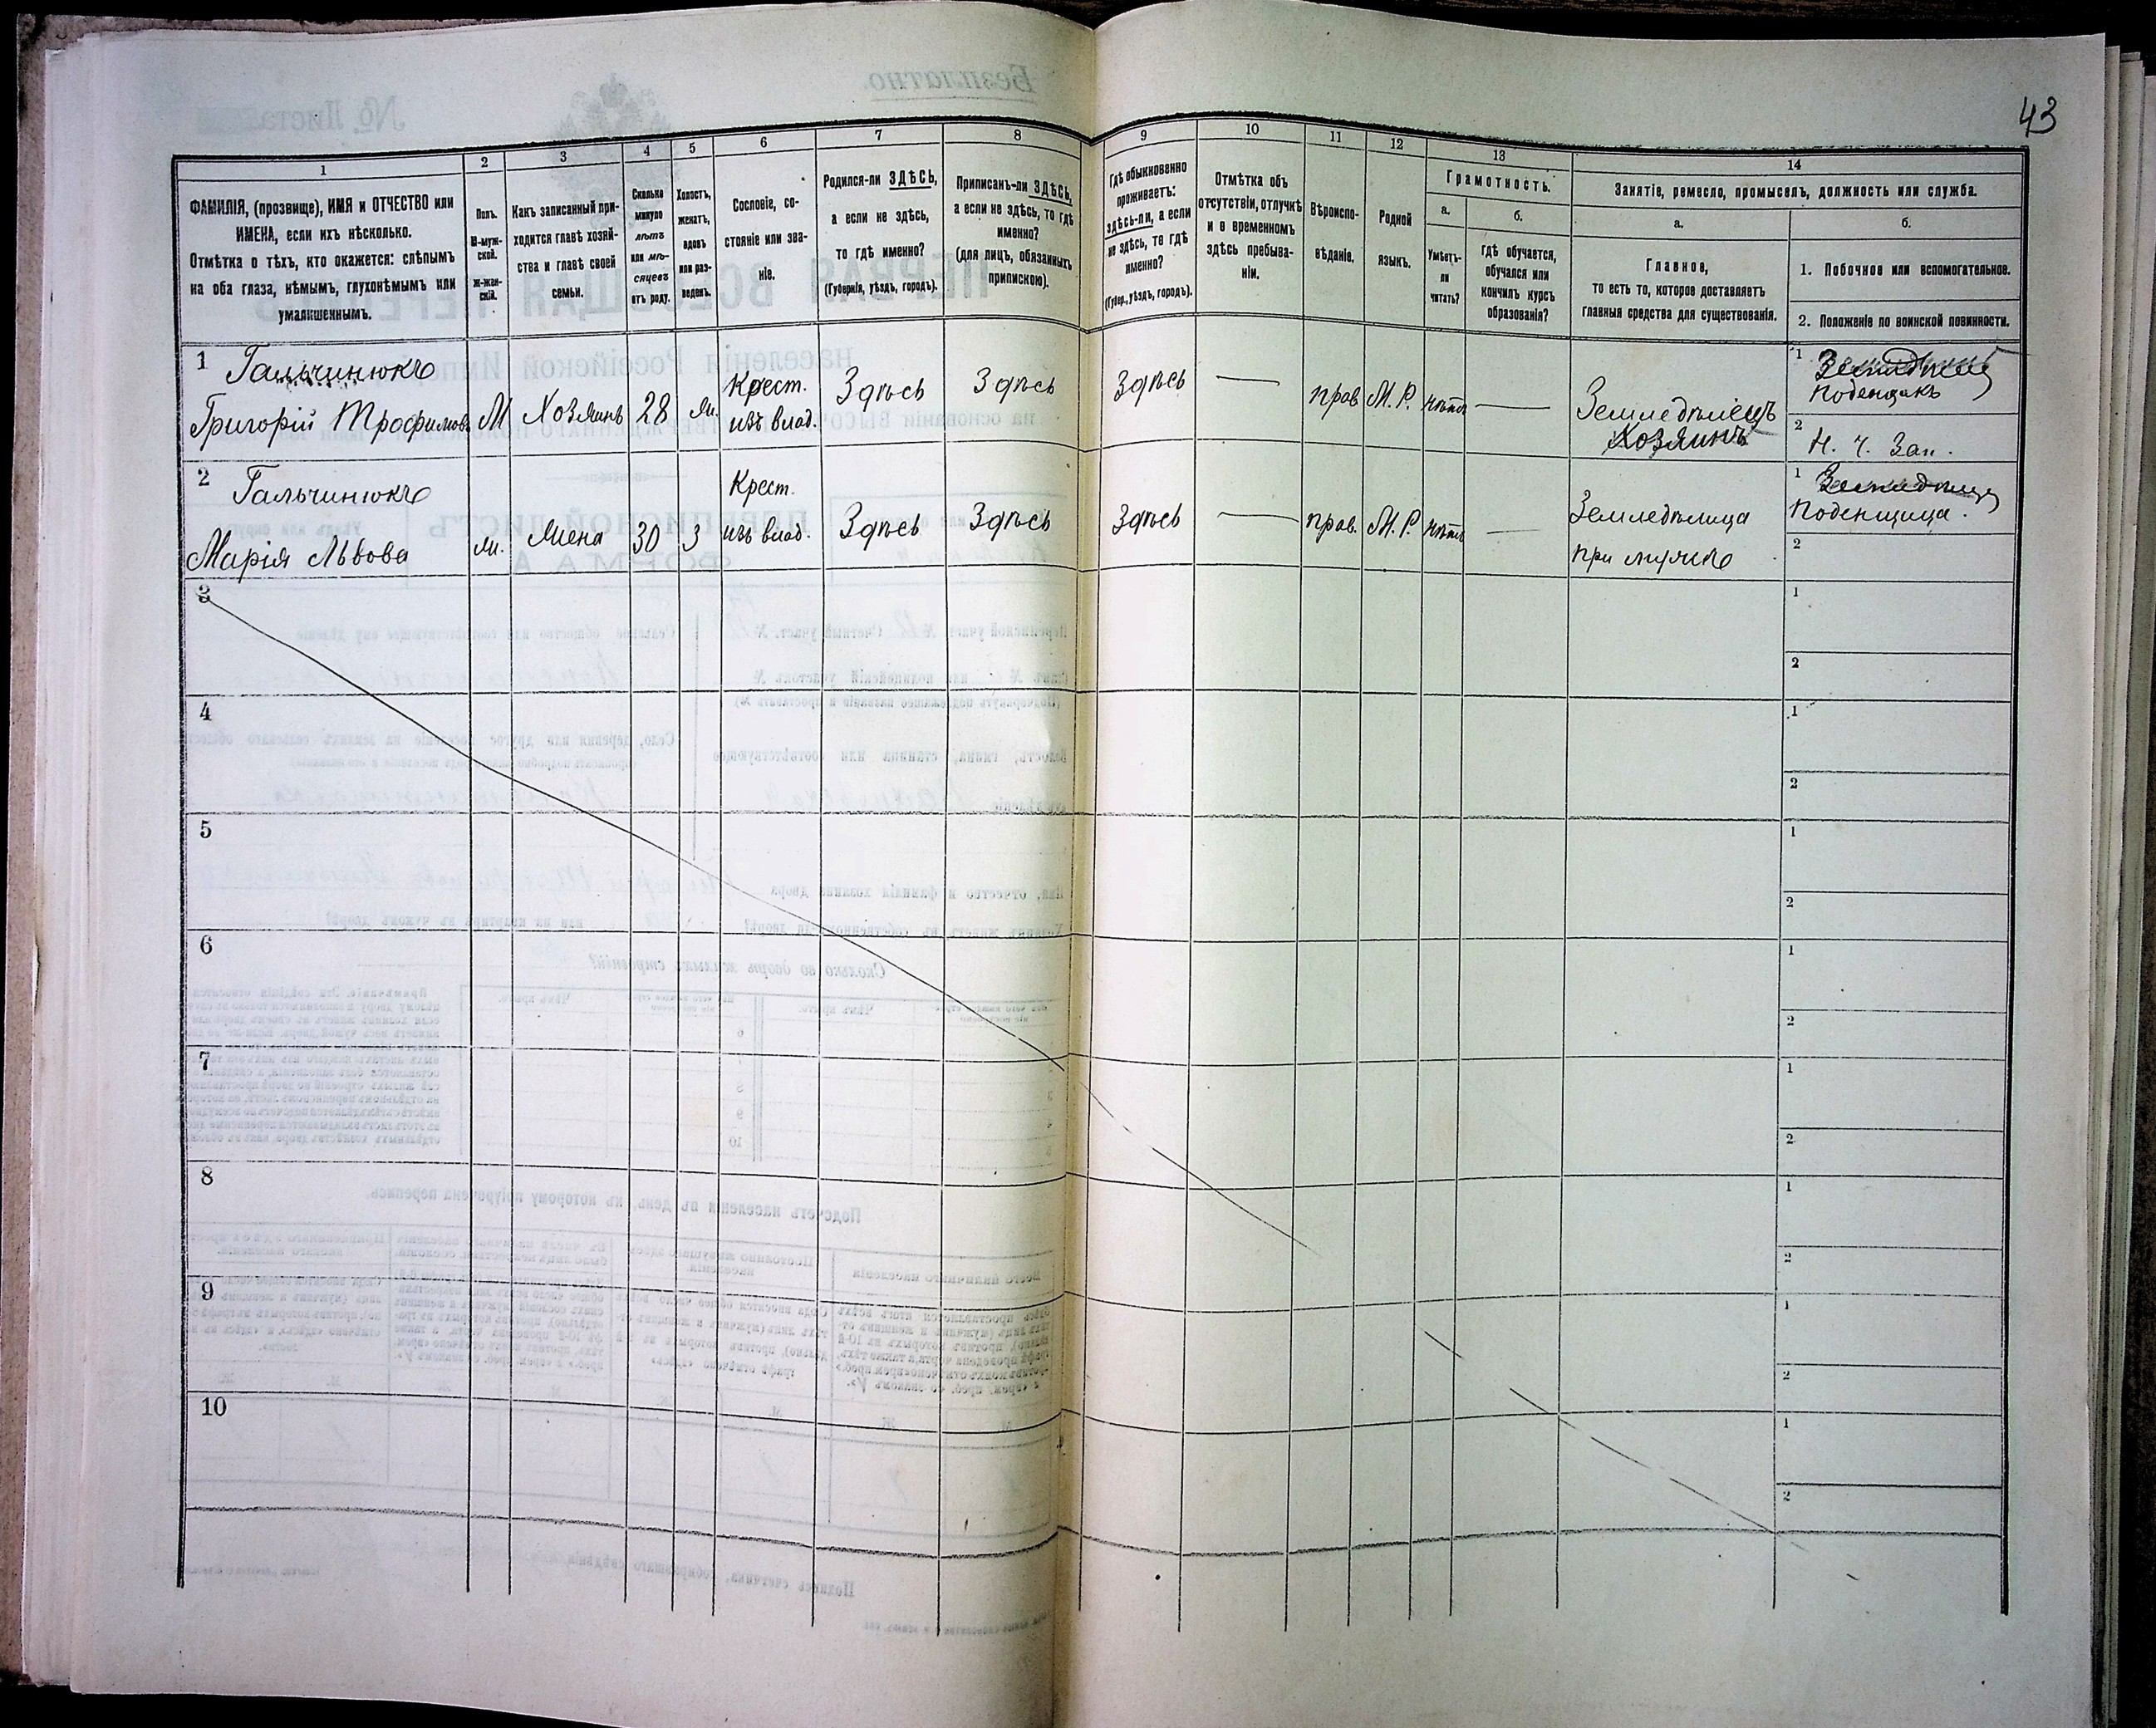 43
1
ФАМИЛІЯ, (прозвище), ИМЯ и ОТЧЕСТВО или
ИМЕНА, если ихъ нѣсколько.
Отмѣтка о тѣхъ, кто окажется: слѣпымъ
на оба глаза, нѣмымъ, глухонѣмымъ или
умалишеннымъ.
2
Полъ.
М-муж-
ской.
Ж-жен-
скій.
3
Какъ записанный при-
ходится главѣ хозяй-
ства и главѣ своей
семьи.
4
Сколько
минуло
лѣтъ
или мѣ-
сяцевъ
отъ роду.
5
Холостъ,
женатъ,
вдовъ
или раз-
веденъ.
6
Сословіе, со-
стояніе или зва-
ніе.
7
Родился-ли ЗДѢСЬ,
а если не здѣсь,
то гдѣ именно?
(Губернія, уѣздъ, городъ).
8
Приписанъ-ли ЗДѢСЬ,
а если не здѣсь, то гдѣ
именно?
(для лицъ, обязанныхъ
припискою).
9
Гдѣ обыкновенно
проживаетъ:
здѣсь-ли, а если
не здѣсь, то гдѣ
именно?
(Губер., уѣздъ, городъ).
10
Отмѣтка объ
отсутствіи, отлучкѣ
и о временномъ
здѣсь пребыва-
ніи.
11
Вѣроиспо-
вѣданіе.
12
Родной
языкъ.
13
Грамотность.
а.
Умѣетъ-
ли
читать?
б.
гдѣ обучается,
обучался или
кончилъ курсъ
образованія?
14
Занятіе, ремесло, промыселъ, должность или служба.
а.
Главное,
то есть то, которое доставляетъ
главныя средства для существованія.
б.
1. Побочное или вспомогательное.
2. Положеніе по воинской повинности.
1 Гальчинюкъ
Григорій Трофимовъ М Хозяинъ 28 ж. Крест. изъ влад. Здѣсь Здѣсь Здѣсь — прав. М. Р. нѣтъ — Земледѣлецъ
Хозяинъ
1 Поденщакъ
2 Н. ч. Зап.
2 Гальчинюкъ
Марія Львова ж. Жена 30 З Крест. изъ влад. Здѣсь Здѣсь Здѣсь — прав. М. Р. нѣтъ — Земледѣлица
при мужѣ
1 Поденщица.
2
3 1
2
4 1
2
5 1
2
6 1
2
7 1
2
8 1
2
9 1
2
10 1
2